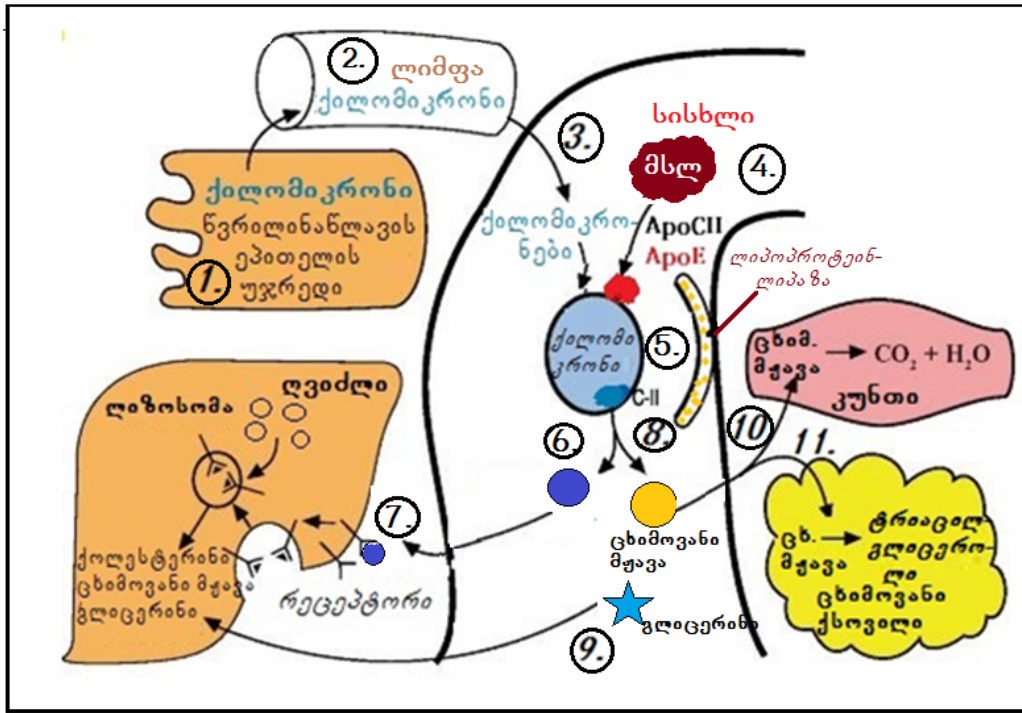 2. ლიმფა
ქილომიკრონი
სისხლი
3.
მსლ
4.
ქილომიკრონი
წვრილინაწლავის
ეპითელის
1. უჯრედი
ქილომიკრო-
ნები
ApoCII
ApoE
ლიპოპროტეინ-
ლიპაზა
ქილომი
კრონი
5.
C-II
ცხიმ.
მჟავა
CO₂ + H₂O
კუნთი
ღვიძლი
ლიზოსომა
6.
8.
10
11.
7.
ცხიმოვანი
მჟავა
ცხ.
მჟავა
ტრიაცილ-
გლიცერო-
ლი
ცხიმოვანი
ქსოვილი
ქოლესტერინი
ცხიმოვანი მჟავა
გლიცერინი
რეცეპტორი
გლიცერინი
9.